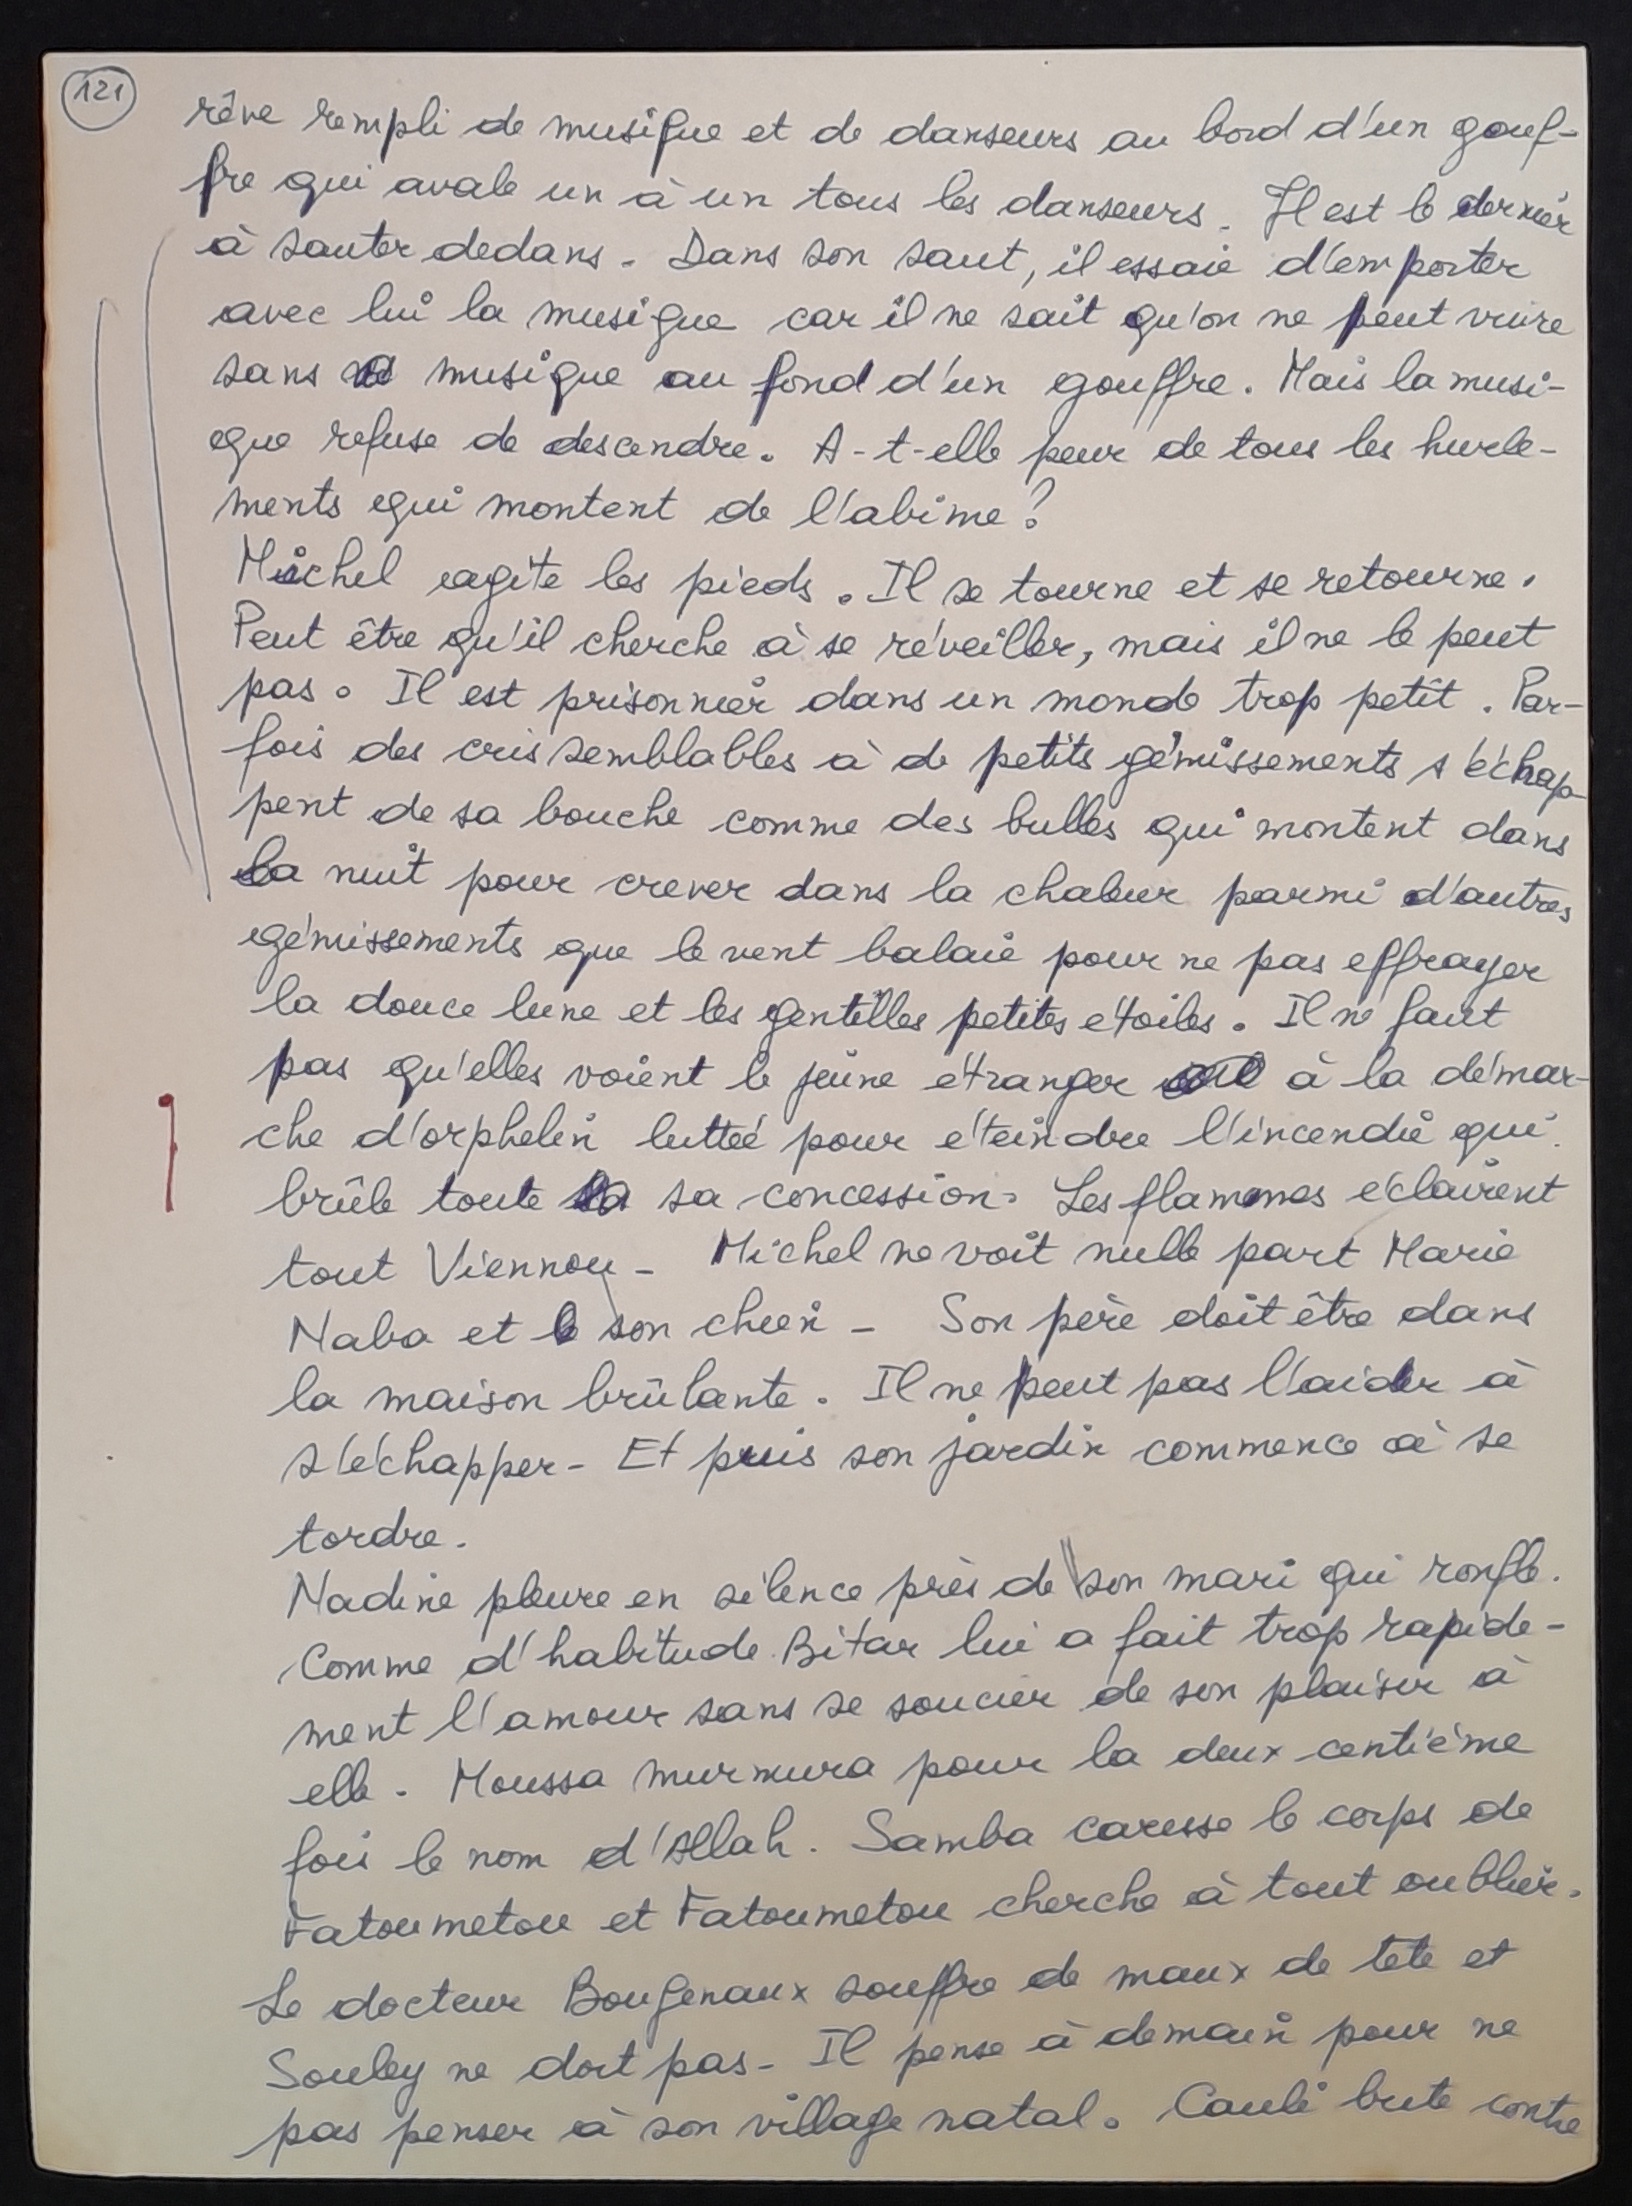 121
rêve rempli de musique et de danseurs au bord d'un gouf-
fre qui avale un à un tous les danseurs. Il est le dernier
à sauter dedans. Dans son saut, il essaie d'emporter
avec lui la musique car il ne sait qu'on ne peut vivre
sans musique au fond d'un gouffre. Mais la musi-
que refuse de descendre. A-t-elle peur de tous les hurle-
ments qui montent de l'abime?
Michel agite les pieds. Il se tourne et se retourne.
Peut être qu'il cherche à se réveiller, mais il ne le peut
pas. Il est prisonnier dans un monde trop petit. Par-
fois des cris semblables à de petits gémissements s'échap-
pent de sa bouche comme des bulles qui montent dans
la nuit pour crever dans la chaleur parmi d'autres
gémissements que le vent balaie pour ne pas effrayer
la douce lune et les gentilles petites étoiles. Il ne faut
pas qu'elles voient le jeune étranger à la démar-
che d'orphelin luttée pour éteindre l'incendie qui
brûle toute sa concession. Les flammes éclairent
tout Viennou - Michel ne voit nulle part Marie
Naba et son chien - Son père doit être dans
la maison brûlante. Il ne peut pas l'aider à
s'échapper - Et puis son jardin commence à se
tordre.
Nadine pleure en silence près de son mari qui ronfle.
Comme d'habitude Bitar lui a fait trop rapide-
ment l'amour sans se soucier de son plaisir à
elle. Moussa murmura pour la deux centième
fois le nom d'Allah. Samba caresse le corps de
Fatoumetou et Fatoumetou cherche à tout oublier.
Le docteur Bougenaux souffre de maux de tete et
Souley ne dort pas - Il pense à demain pour ne
pas penser à son village natal. Cauli bute contre